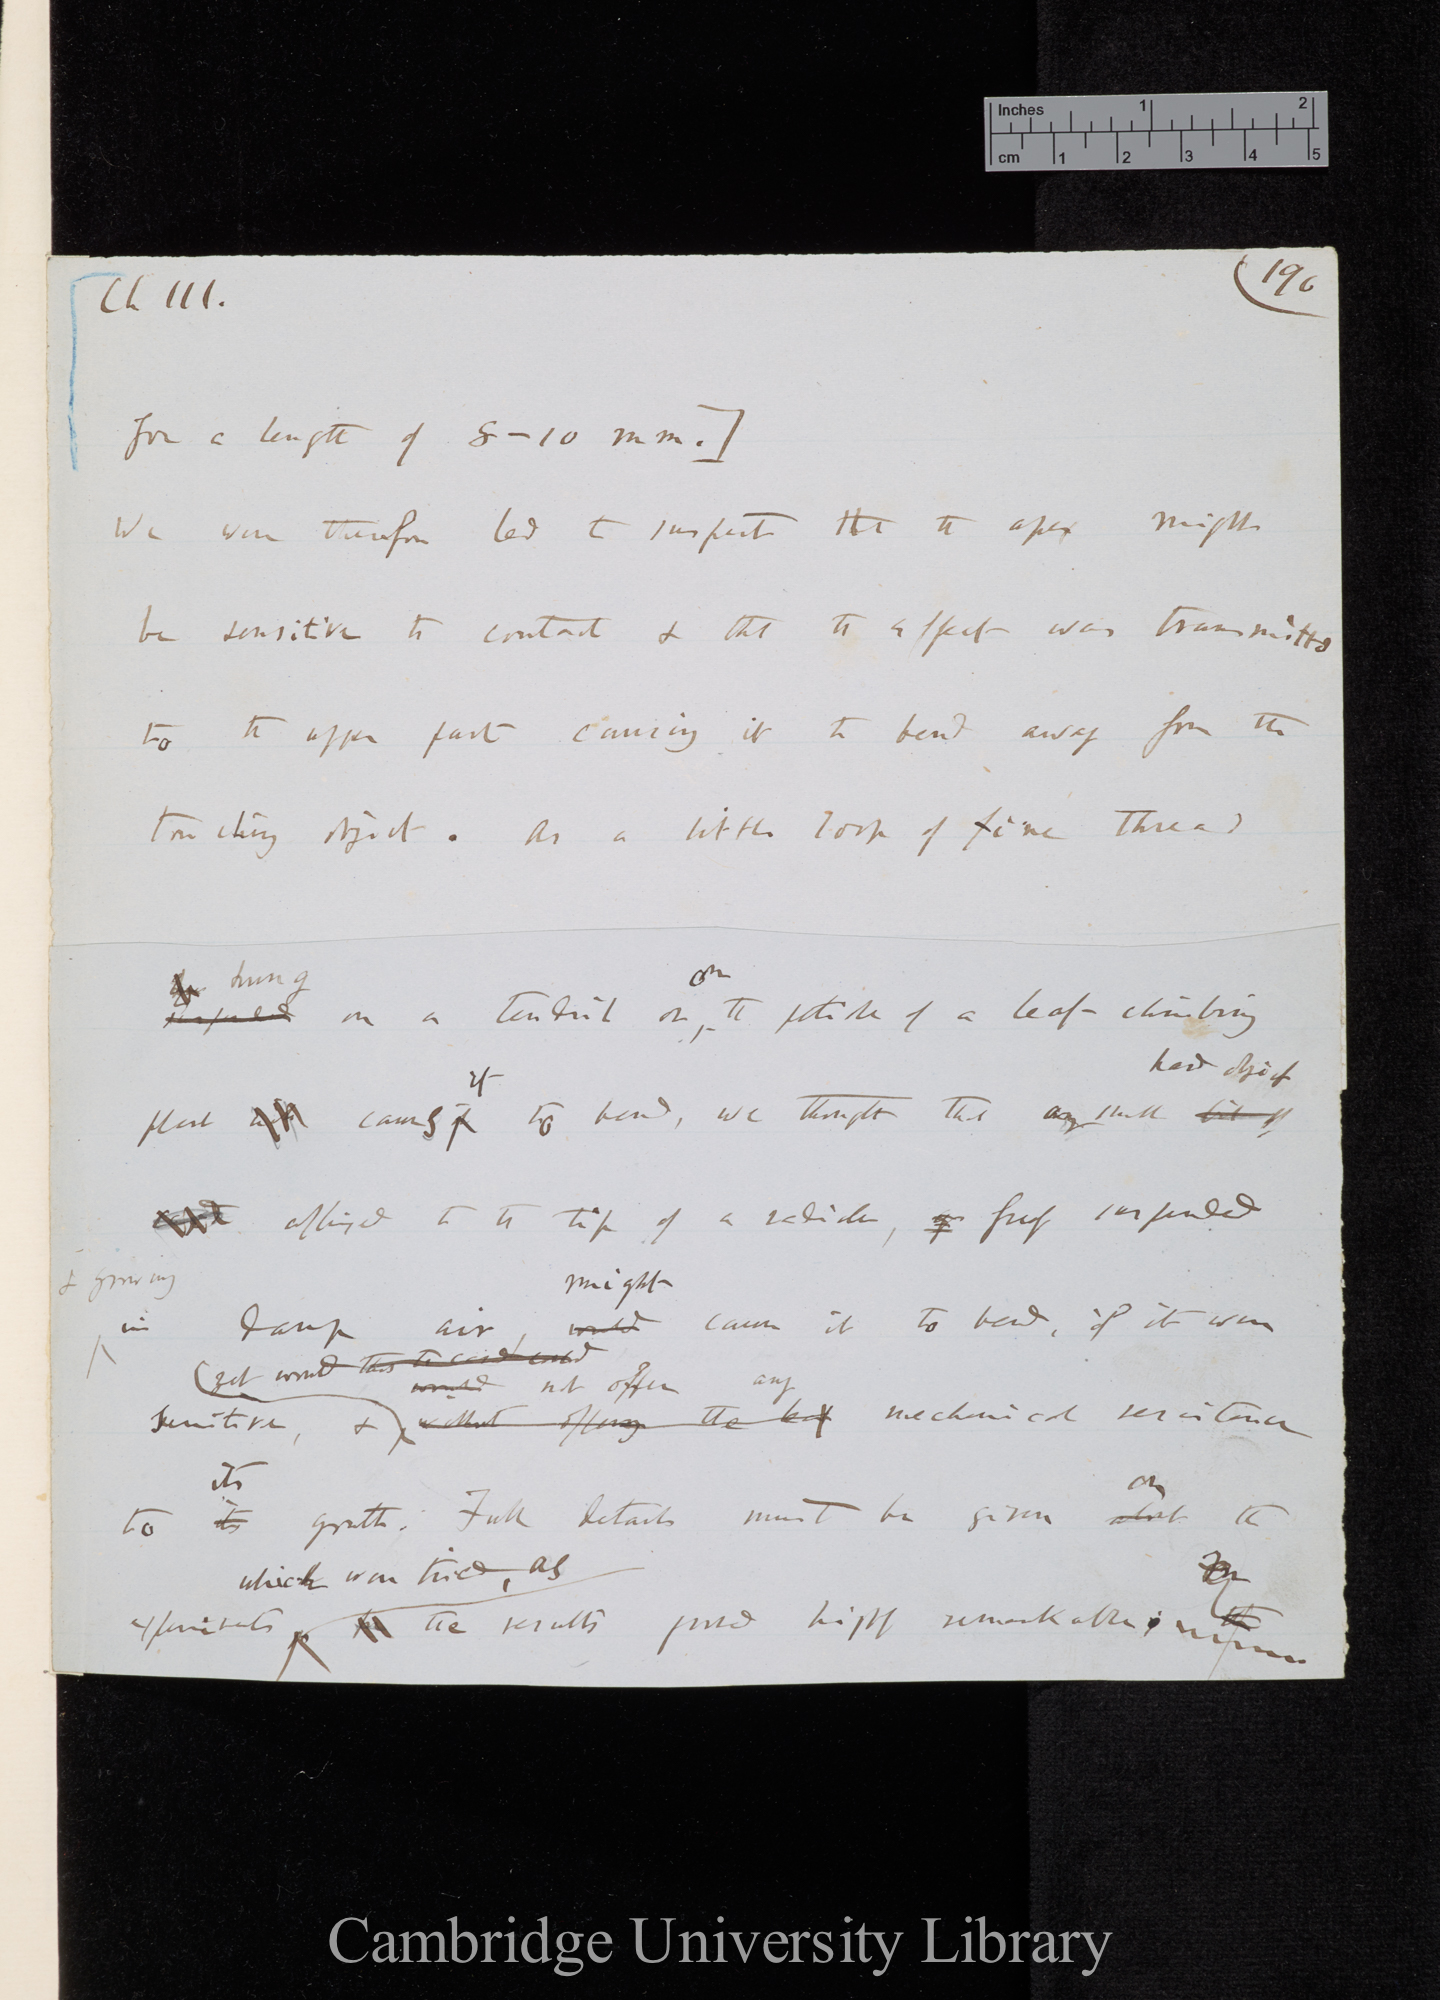 Inches 1 2
cm 1 2 3 4 5
Ch III.
196
for a length of 8–10 mm.]
We were therefore led to suspect that the apex might
be sensitive to contact & that the effect was transmitted
to the upper part causing it to bend away from the
touching object. As a little loop of fine thread
hung
suspended on a tendril or on the petiole of a leaf-climbing
it hard object
plant causes to bend, we thought that any small bit of
card affixed to the tip of a radicle, freely suspended
& growing might
in damp air, would cause it to bend, if it were
(yet would this the card could
would not offer any
sensitive, & without offering the least mechanical resistance
its
to its growth. Full details must be given on about the
which were tried, as
experiments the results proved highly remarkable;
Cambridge University Library